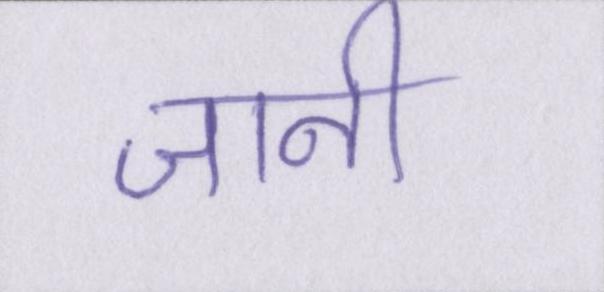 जानी